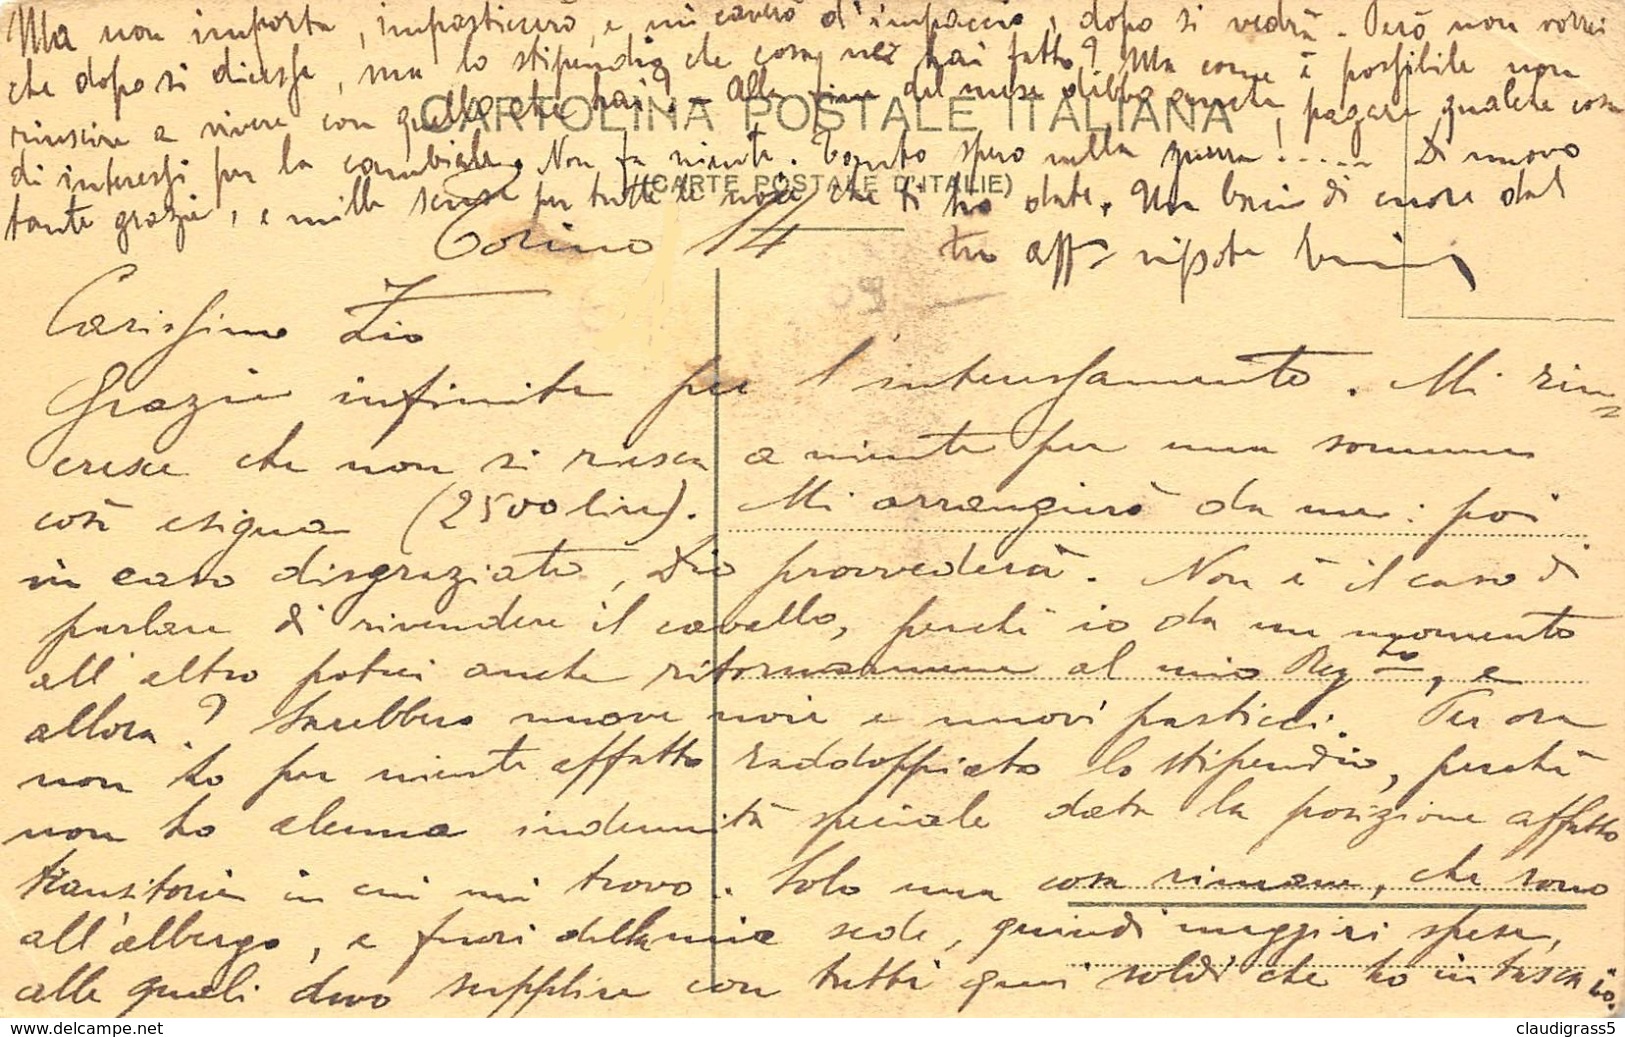 Torino 14
Carissimo Zio
Grazie infinite per l'interessamento. Mi rin-
cresce che non si riesca a niente per una somma
così esigua (2500 lire). Mi arrangierò da me: poi
in caso disgraziato, Dio provvederà. Non è il caso di
parlare di rivendere il cavallo, perché io da un momento
all'altro potrei anche ritornarmene al mio Regto, e
allora? Sarebbero nuove noie e nuovi pasticci. Per ora
non ho per niente affatto raddoppiato lo stipendio, perché
non ho alcuna indennità speciale data la posizione affatto
transitoria in cui mi trovo. Solo una cosa rimane, che sono
all'albergo, e fuori della mia sede, quindi maggiori spese,
alle quali devo supplire con tutti quei soldi che ho in tasca io.
Ma non importa, impasticcerò, e mi caverò d'impaccio, dopo si vedrà. Però non vorrei
che dopo si dicesse, ma lo stipendio che cosa ne hai fatto? Ma come è possibile non
riuscire a vivere con quello che hai? - Alla fine del mese debbo anche pagare qualche cosa
di interessi per la cambiale. Non fa niente. Tanto spero nella guerra!..... Di nuovo
tante grazie, e mille scuse per tutte le noie che ti ho date. Un bacio di cuore dal
tuo aff nipote
CARTOLINA POSTALE ITALIANA
(CARTE POSTALE D'ITALIE)
delcampe.net
claudigrass5